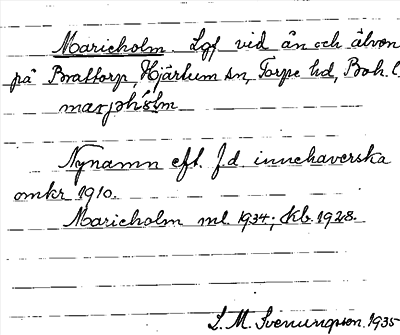 Marieholm. Lgf vid ån och älven
på Brattorp, Hjärtum sn, Torpe hd, Boh. l.
marjəhòlm
Nynamn eft. f.d. innehaverska
omkr 1910.
Marieholm ml. 1934; Kb. 1928.
L. M. Svenungsson. 1935